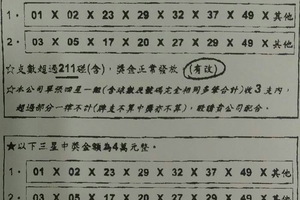 1. 01 X 02 X 23 X 29 X 32 X 37 X 49 X 其他
2. 03 X 05 X 17 X 20 X 29 X 32 X 49 X 其他
☆支數超過211碰(含),獎金正常發放 (有改)
☆本公司單張四星一組(含球數及號碼完全相同多筆合計)收3支內,
超過部分一律不計(牌支不算中獎亦不算),敬請貴公司配合。
★以下三星中獎金額為4萬元整。
1. 01 X 02 X 23 X 29 X 32 X 37 X 49 X 其他
2. 03 X 05 X 17 X 20 X 29 X 32 X 49 X 其他